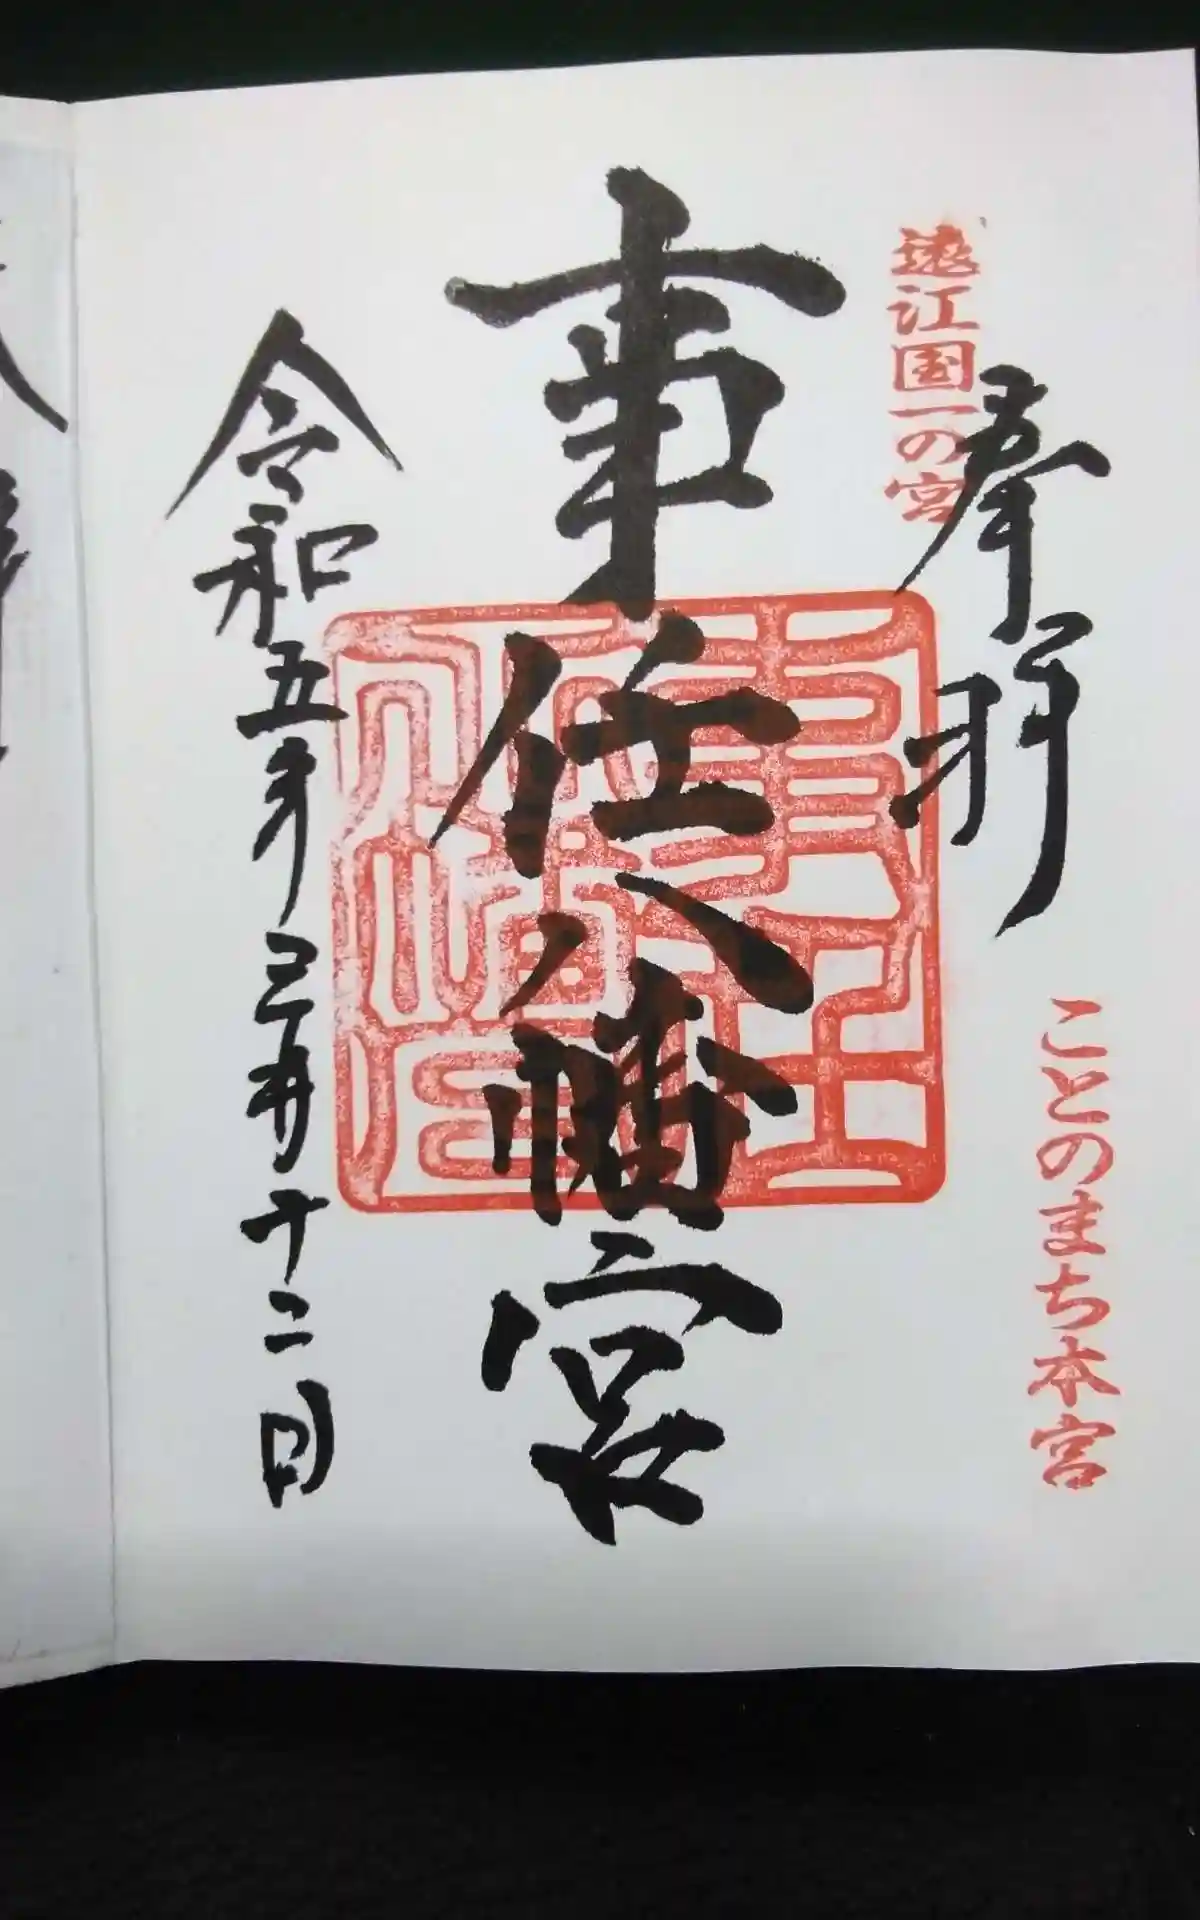 遠江国一の宮
奉拝
ことのまち本宮
事任八幡宮
令和五年三月十二日